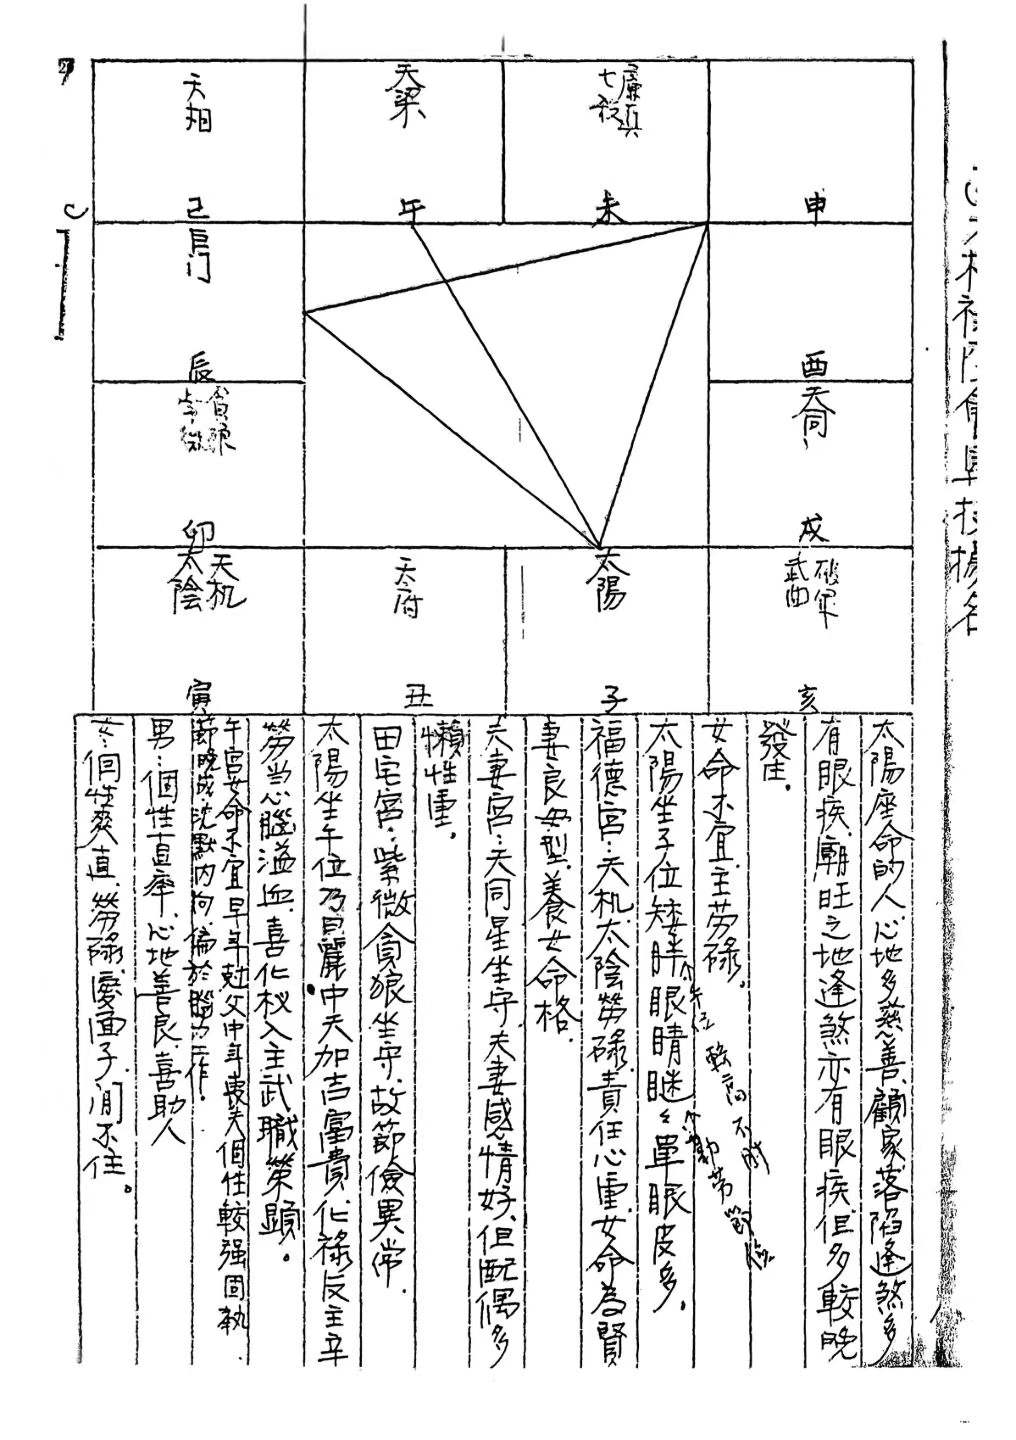 天相
巳
天梁
午
廉貞
七殺
未
申
巨门
辰
貪狼
紫微
卯
酉
天同
戌
天机
太陰
寅
天府
丑
太陽
子
破軍
武曲
亥
太陽座命的人、心地多慈善、顧家落陷逢煞多
有眼疾、廟旺之地逢煞亦有眼疾但多較晚
發生。
女命不宜、主劳碌。
太陽坐子位矮胖眼睛瞇々單眼皮多。
午位較高不胖
勤劳節儉
福德宮：天机、太陰勞碌、責任心重、女命為賢
妻良母型、養女命格．
夫妻宮：天同星坐守、夫妻感情好、但配偶多
懶性重。
田宅宮：紫微貪狼坐守、故節儉異常．
太陽坐午位乃日麗中天加吉富貴、化祿反主辛
勞当心腦溢血、喜化权入主武職榮顯。
午宮女命不宜早年尅父中年喪夫個性較强固執．
節晚成、沈默内拘、偏於腦力工作．
男：個性直率、心地善良、喜助人
女：個性爽直、勞碌、愛面子、闲不住。